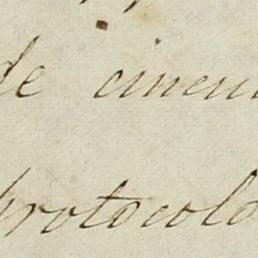 de cincu
protocolo